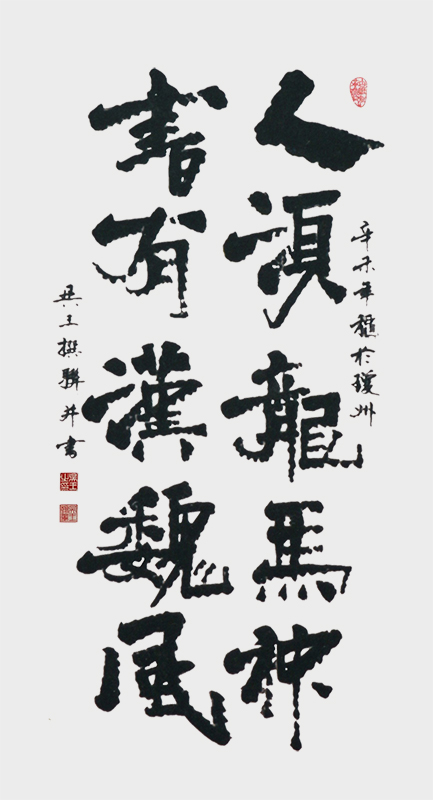 辛未年穐於瓊州
人須龍馬神
書有漢魏風
王撰聯并書